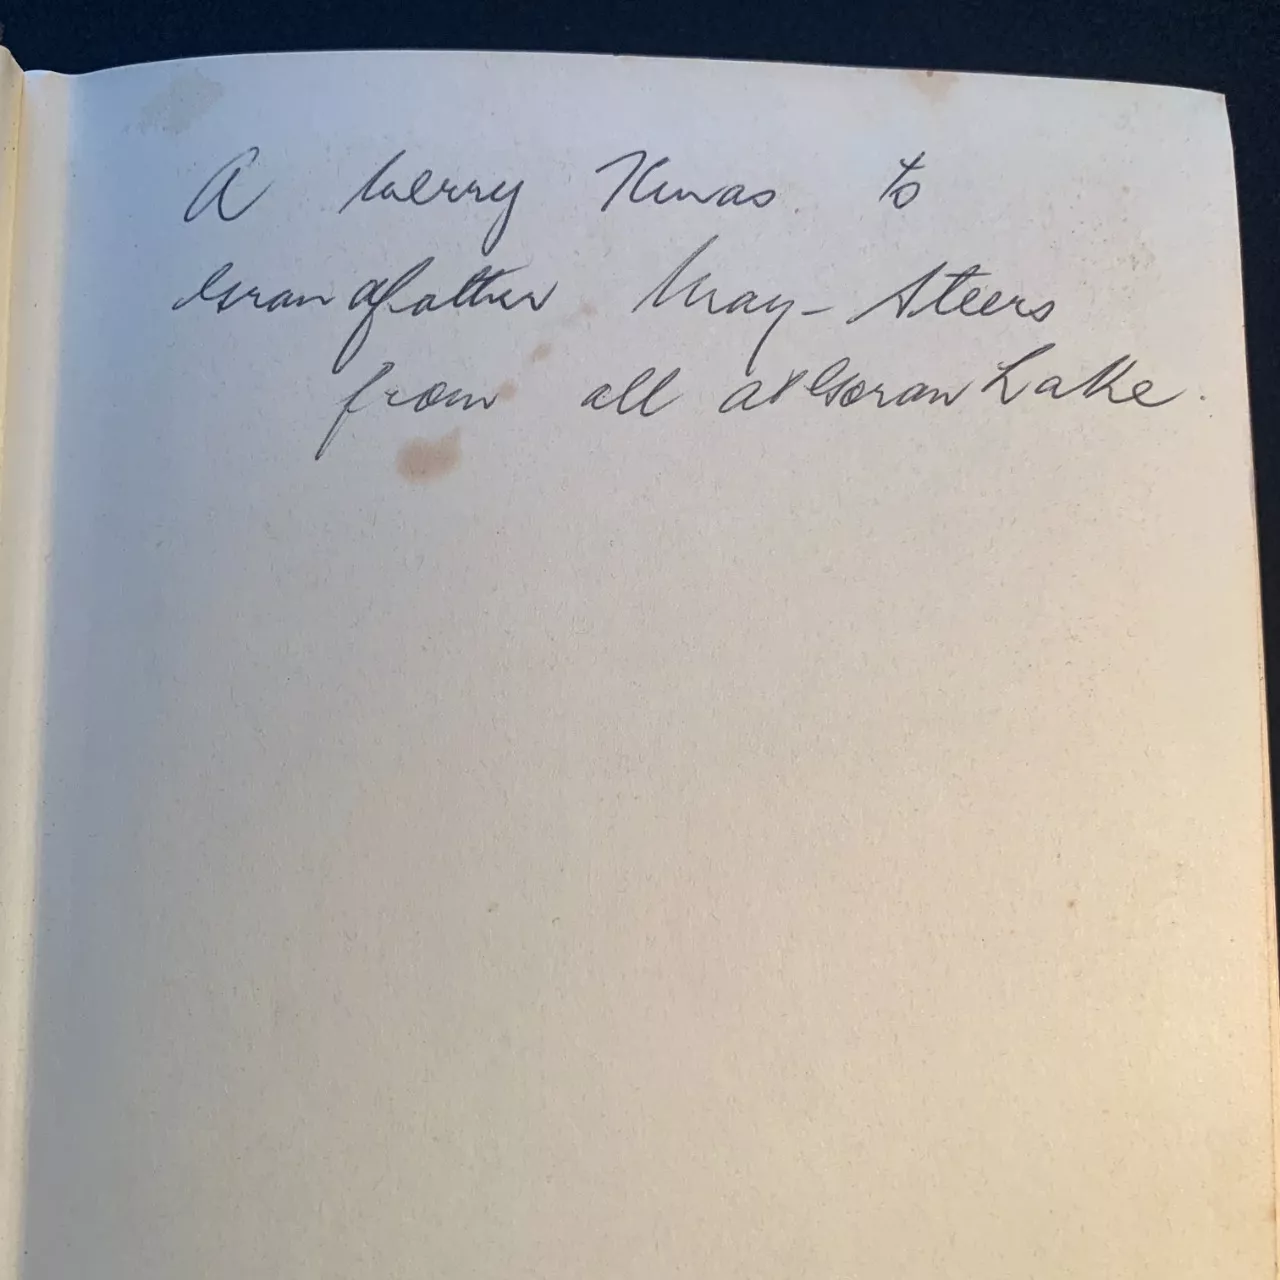 A merry Xmas to
Grandfather May-Steers
from all at Goran Lake.